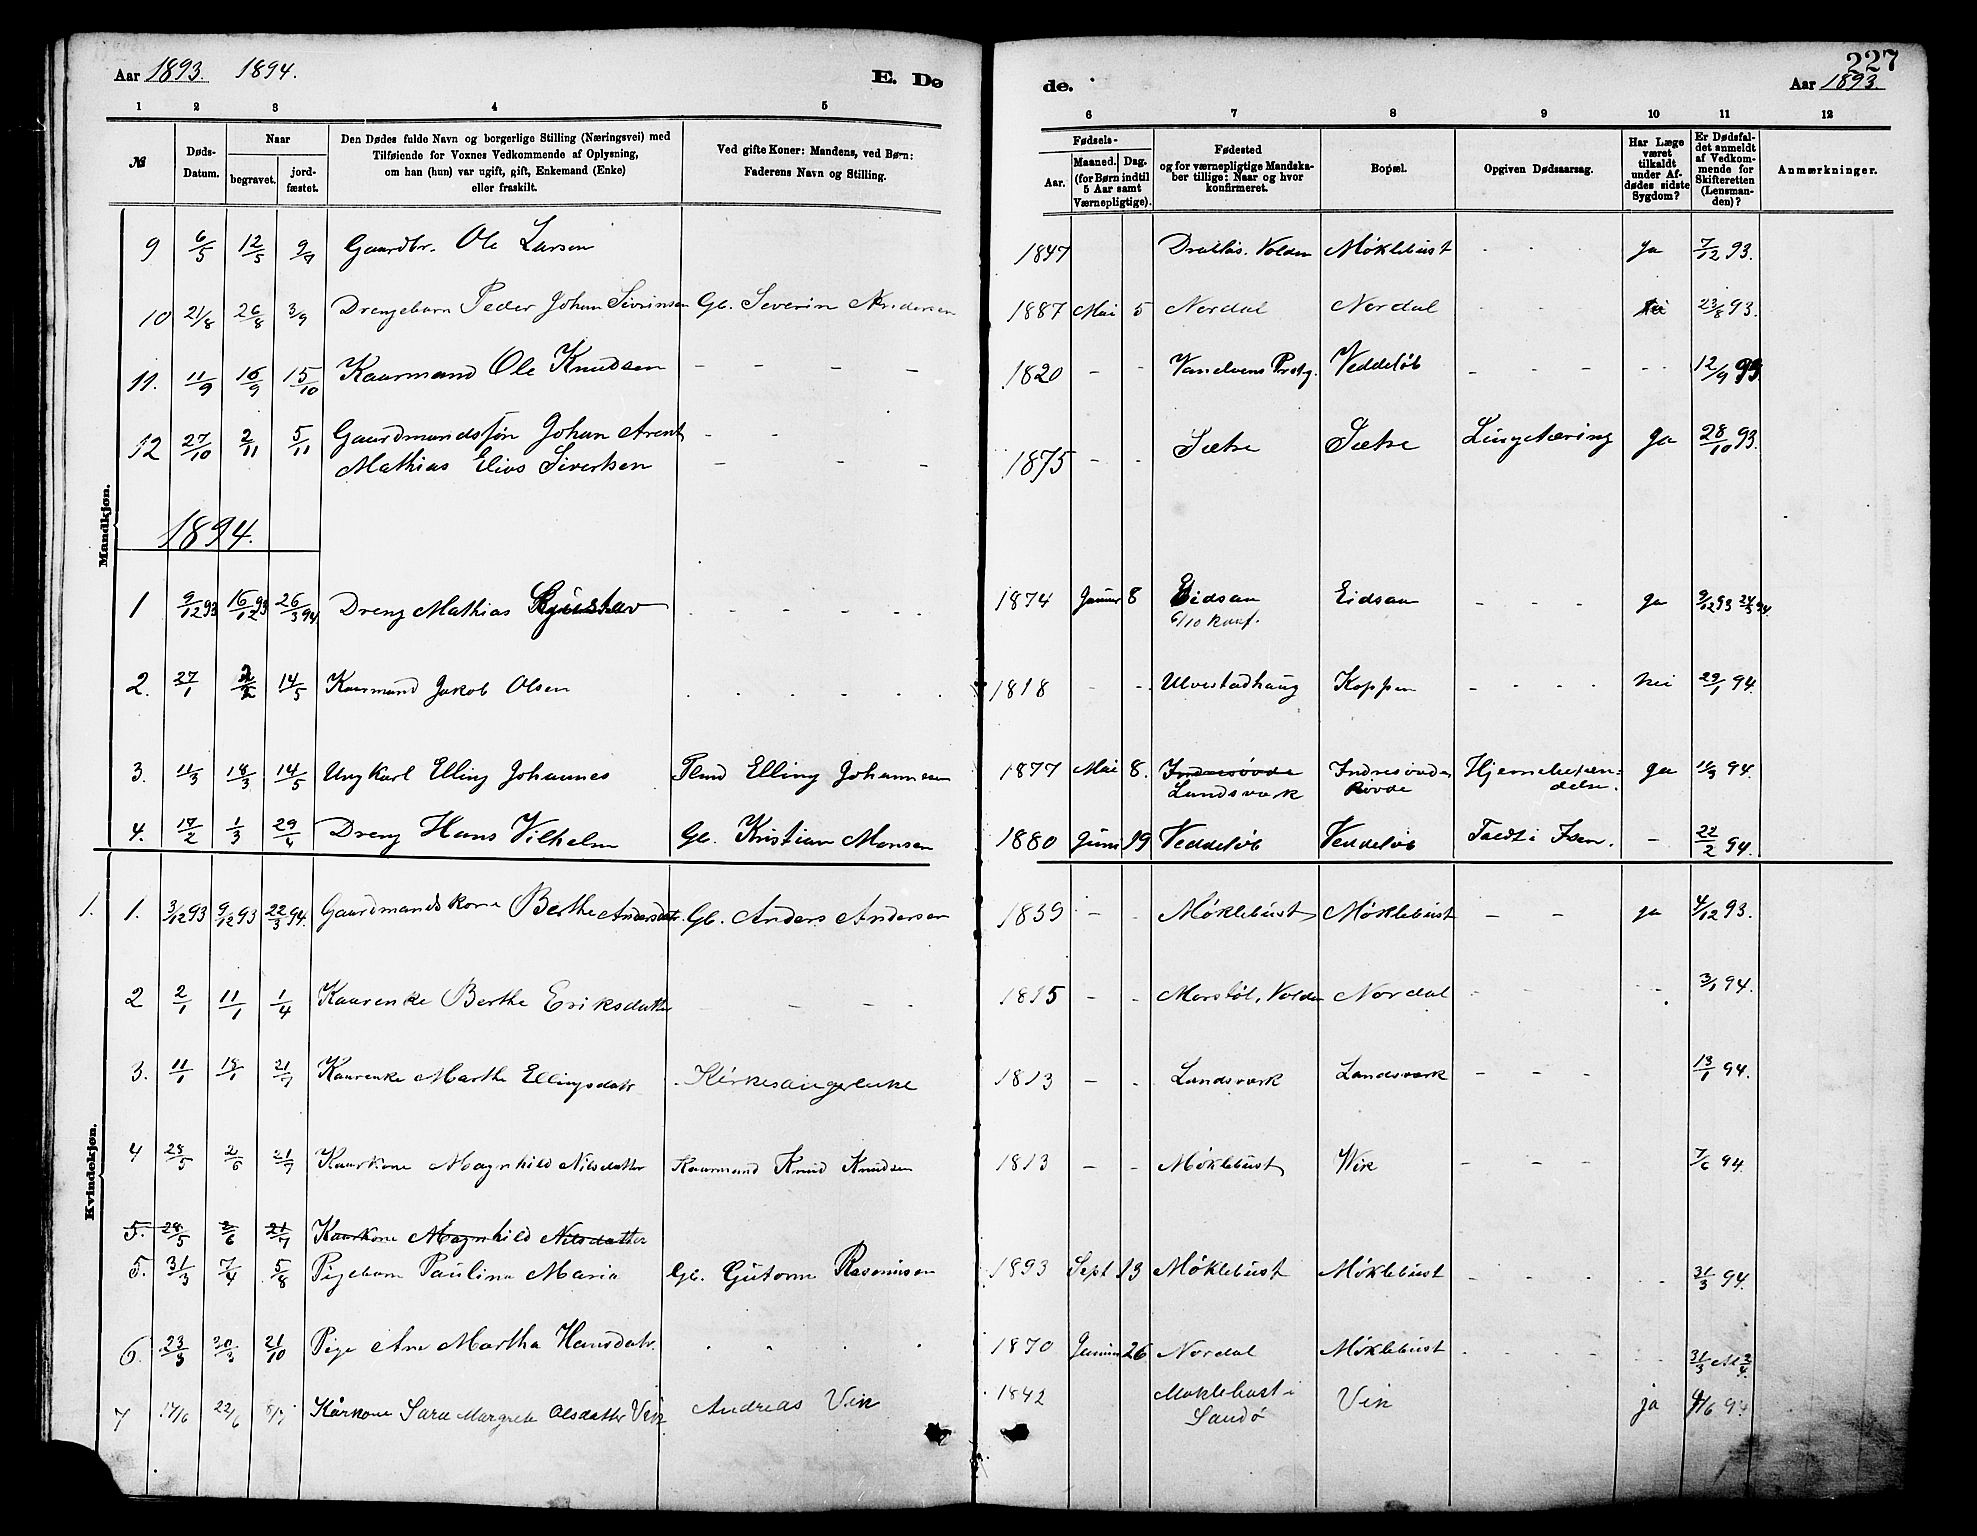 227
Aar 1893. 1894. E. Dø de. Aar 1893.
1 2 3 4 5 6 7 8 9 10 11 12
№ Døds-Datum. Naar begravet. jord-fæstet. Den Dødes fulde Navn og borgerlige Stilling (Næringsvei) med Tilføiende for Voxnes Vedkommende af Oplysning, om han (hun) var ugift, gift, Enkemand (Enke) eller fraskilt. Ved gifte Koner: Mandens, ved Børn: Faderens Navn og Stilling. Fødsels- Aar. Maaned. Dag. (for Børn indtil 5 Aar samt Værnepligtige). Fødested og for værnepligtige Mandskaber tillige: Naar og hvor konfirmeret. Bopæl. Opgiven Dødsaarsag. Har Læge været tilkaldt under Afdødes sidste Sygdom? Er Dødsfaldet anmeldt af Vedkommende for Skifteretten (Lensmanden)? Anmærkninger.
Mandkjøn.
9 6/5 12/5 9/7 Gaardbr. Ole Larsen 1847 Volden Møklebust Ja 7/12 93.
10 21/8 26/8 3/9 Drengebarn Peder Johan Sivrinsen Gb. Severin Andersen 1887 Mai 5 Nordal Nordal 23/8 93.
11. 11/9 16/9 15/10 Kaarmand Ole Knudsen - - - - 1820 - - Vanelvens Prstg. Veddeløb - - - - - 12/9 93
12 27/10 2/11 5/11 Gaardmandssøn Johan Arent - -
Mathias Elias Sivertsen - - - 1875 - - Sætre Sætre Lungetæring Ja 28/10 93.
1894.
1 9/12 93 16/12 93 26/3 94 Dreng Mathias Gustav - - - - 1874 Januar 8 Eidsaa Eidsaa - - - ja 9/12 93 24/3 94.
6/10 konf.
2. 27/1 2/2 14/5 Kaarmand Jakob Olsen - - - - 1818 - - Ulvestadhaug Koppen - - - - nei 29/1 94.
3. 11/3 18/3 14/5 Ungkarl Elling Johannes Elling Johannesen 1877 Mai 8. Indresøvde Indresøvde Hjernebetæn-
Landsværk Rovde delse. ja 11/3 94.
4. 17/2 1/3 29/4 Dreng Hans Vilhelm Gb. Kristian Monsen 1880 Juni 19 Veddeløb Veddeløb Faldt i Isen. - 22/2 94.
Kvindekjøn.
1. 1. 3/12 93 9/12 93 22/3 94. Gaardmandskone Berthe Andersdatr. Gb. Anders Andersen 1839 - - Møklebust Møklebust - - ja 4/12 93.
2 2/1 11/1 1/4 Kaarenke Berthe Eriksdatter - - - 1815 - - Volden Nordal - - - - - 3/1 94.
3. 11/1 18/1 21/7 Kaarenke Marthe Ellingsdatr. Kirkesangerenke 1813 - - Landsværk Landsværk - - - 13/1 94.
4 28/5 2/6 21/7 Kaarkone Magnhild Nilsdatter Kaarmand Knud Knudsen 1813 - - Møklebust Wik - - - 7/6 94.
5. 28/5 2/6 21/7 Kaarkone Magnhild Nilsdatter
5. 31/3 7/4 5/8 Pigebarn Paulina Maria Gb. Gutorm Rasmusen 1893 Sept 13 Møklebust Møklebust - - - - - 31/3 94.
6. 23/3 30/3 21/10 Pige Ane Martha Hansdatr. - - - - 1870 Januar 26 Nordal Møklebust - - - - - 31/3
7 17/6 22/6 8/7 Kårkone Sara Margrete Olsdatter Vik Andreas Vik 1842 Møklebust i Vik ja 94
Sandø